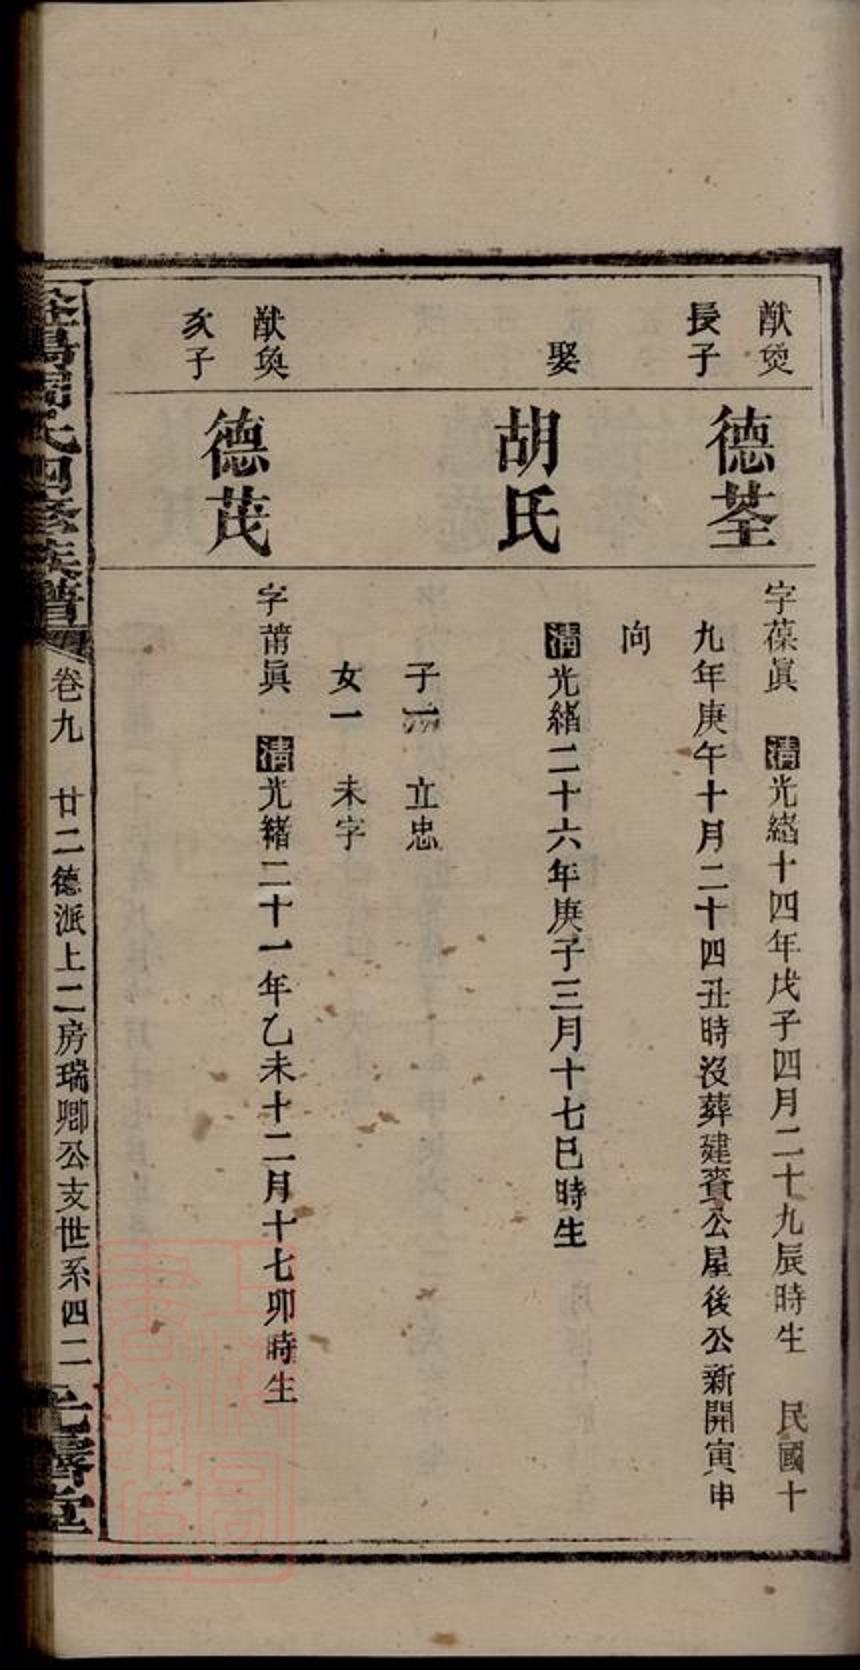 猷煲
長子
德荃
字葆眞 清光緒十四年戊子四月二十九辰時生 民國十
九年庚午十月二十四丑時沒葬建賓公屋後公新開寅申
向
娶
胡氏
清光緒二十六年庚子三月十七巳時生
子一 立忠
女一 未字
猷奐
次子
德茂
字莆眞 清光緒二十一年乙未十二月十七卯時生
周氏四修族譜 卷九 廿二德派上二房瑞卿公支世系四二